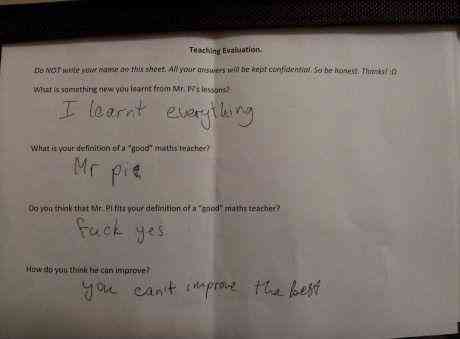 Teaching Evaluation.
Do NOT write your name on this sheet. All your answers will be kept confidential. So be honest. Thanks! :D
What is something new you learnt from Mr. Pi's lessons?
I learnt everything
What is your definition of a "good" maths teacher?
Mr pie
Do you think that Mr. Pi fits your definition of a "good" maths teacher?
Fuck yes
How do you think he can improve?
you can't improve the best